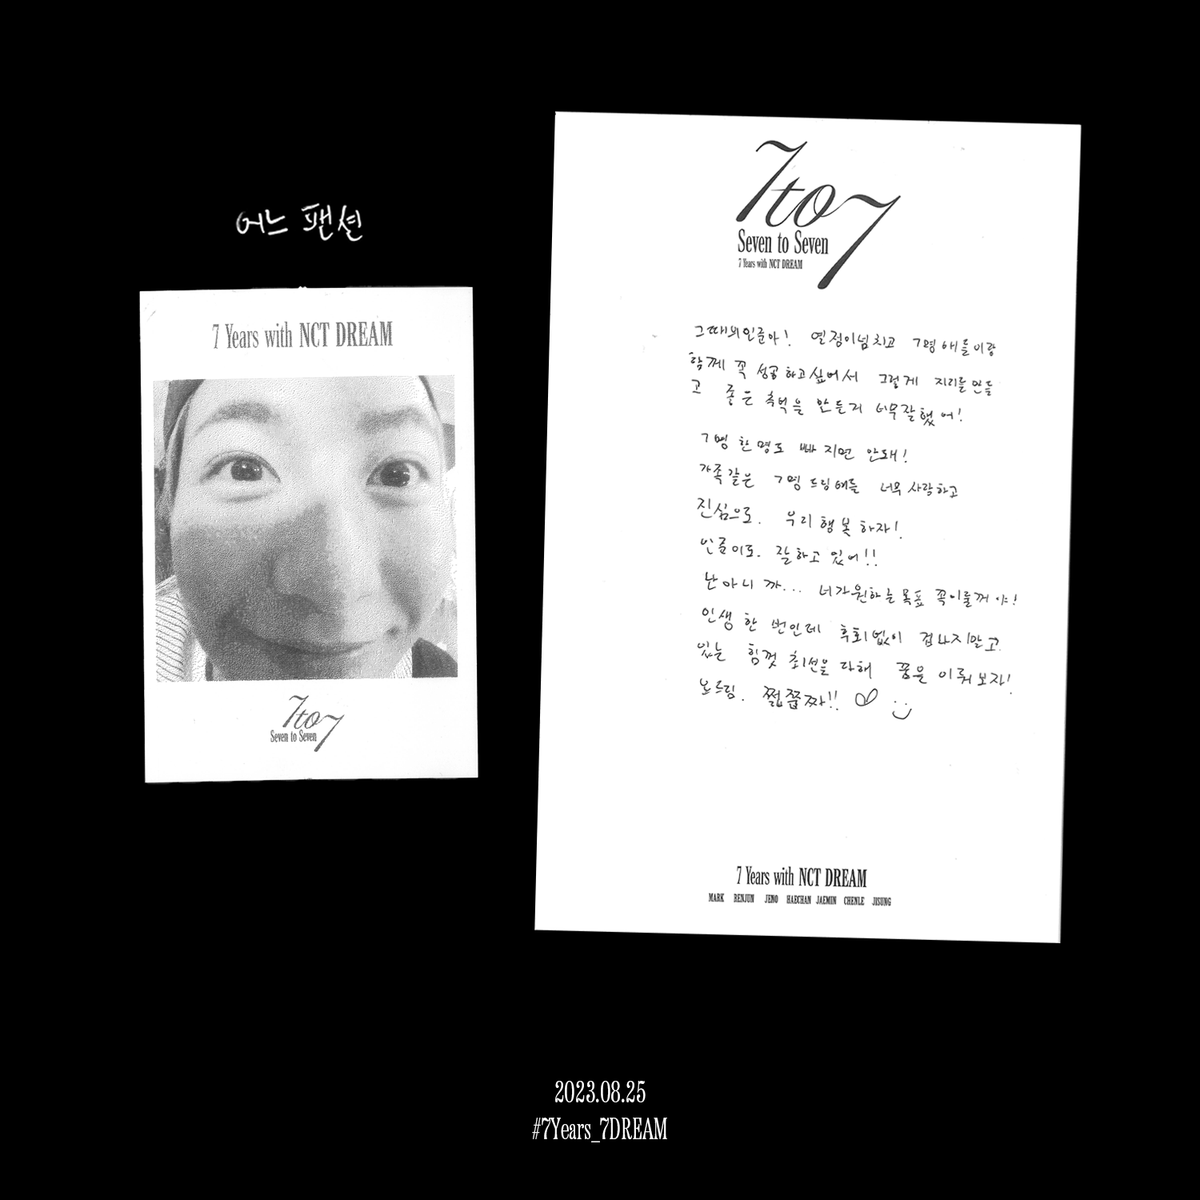 어느 팬션
7 Years with NCT DREAM
7to7
Seven to Seven
7to7
Seven to Seven
7 Years with NCT DREAM
그때의인준아! 열정이넘치고 7명 애들이랑
함께 꼭 성공하고싶어서 그렇게 자리를만들
고 좋은 추억을 만든거 너무잘했어!
7명 한명도 빠지면 안돼!
가족같은 7명 드림애들 너무 사랑하고
진심으로. 우리 행복하자!
인준이도. 잘하고 있어!!
난아니까... 너가원하는목표 꼭이룰꺼야!
인생 한 번인데 후회없이 겁나지말고
있는 힘껏 최선을 다해 꿈을 이뤄보자!
드림. 쩗쭙짜!!
7 Years with NCT DREAM
MARK RENJUN JENO HAECHAN JAEMIN CHENLE JISUNG
2023.08.25
#7Years_7DREAM